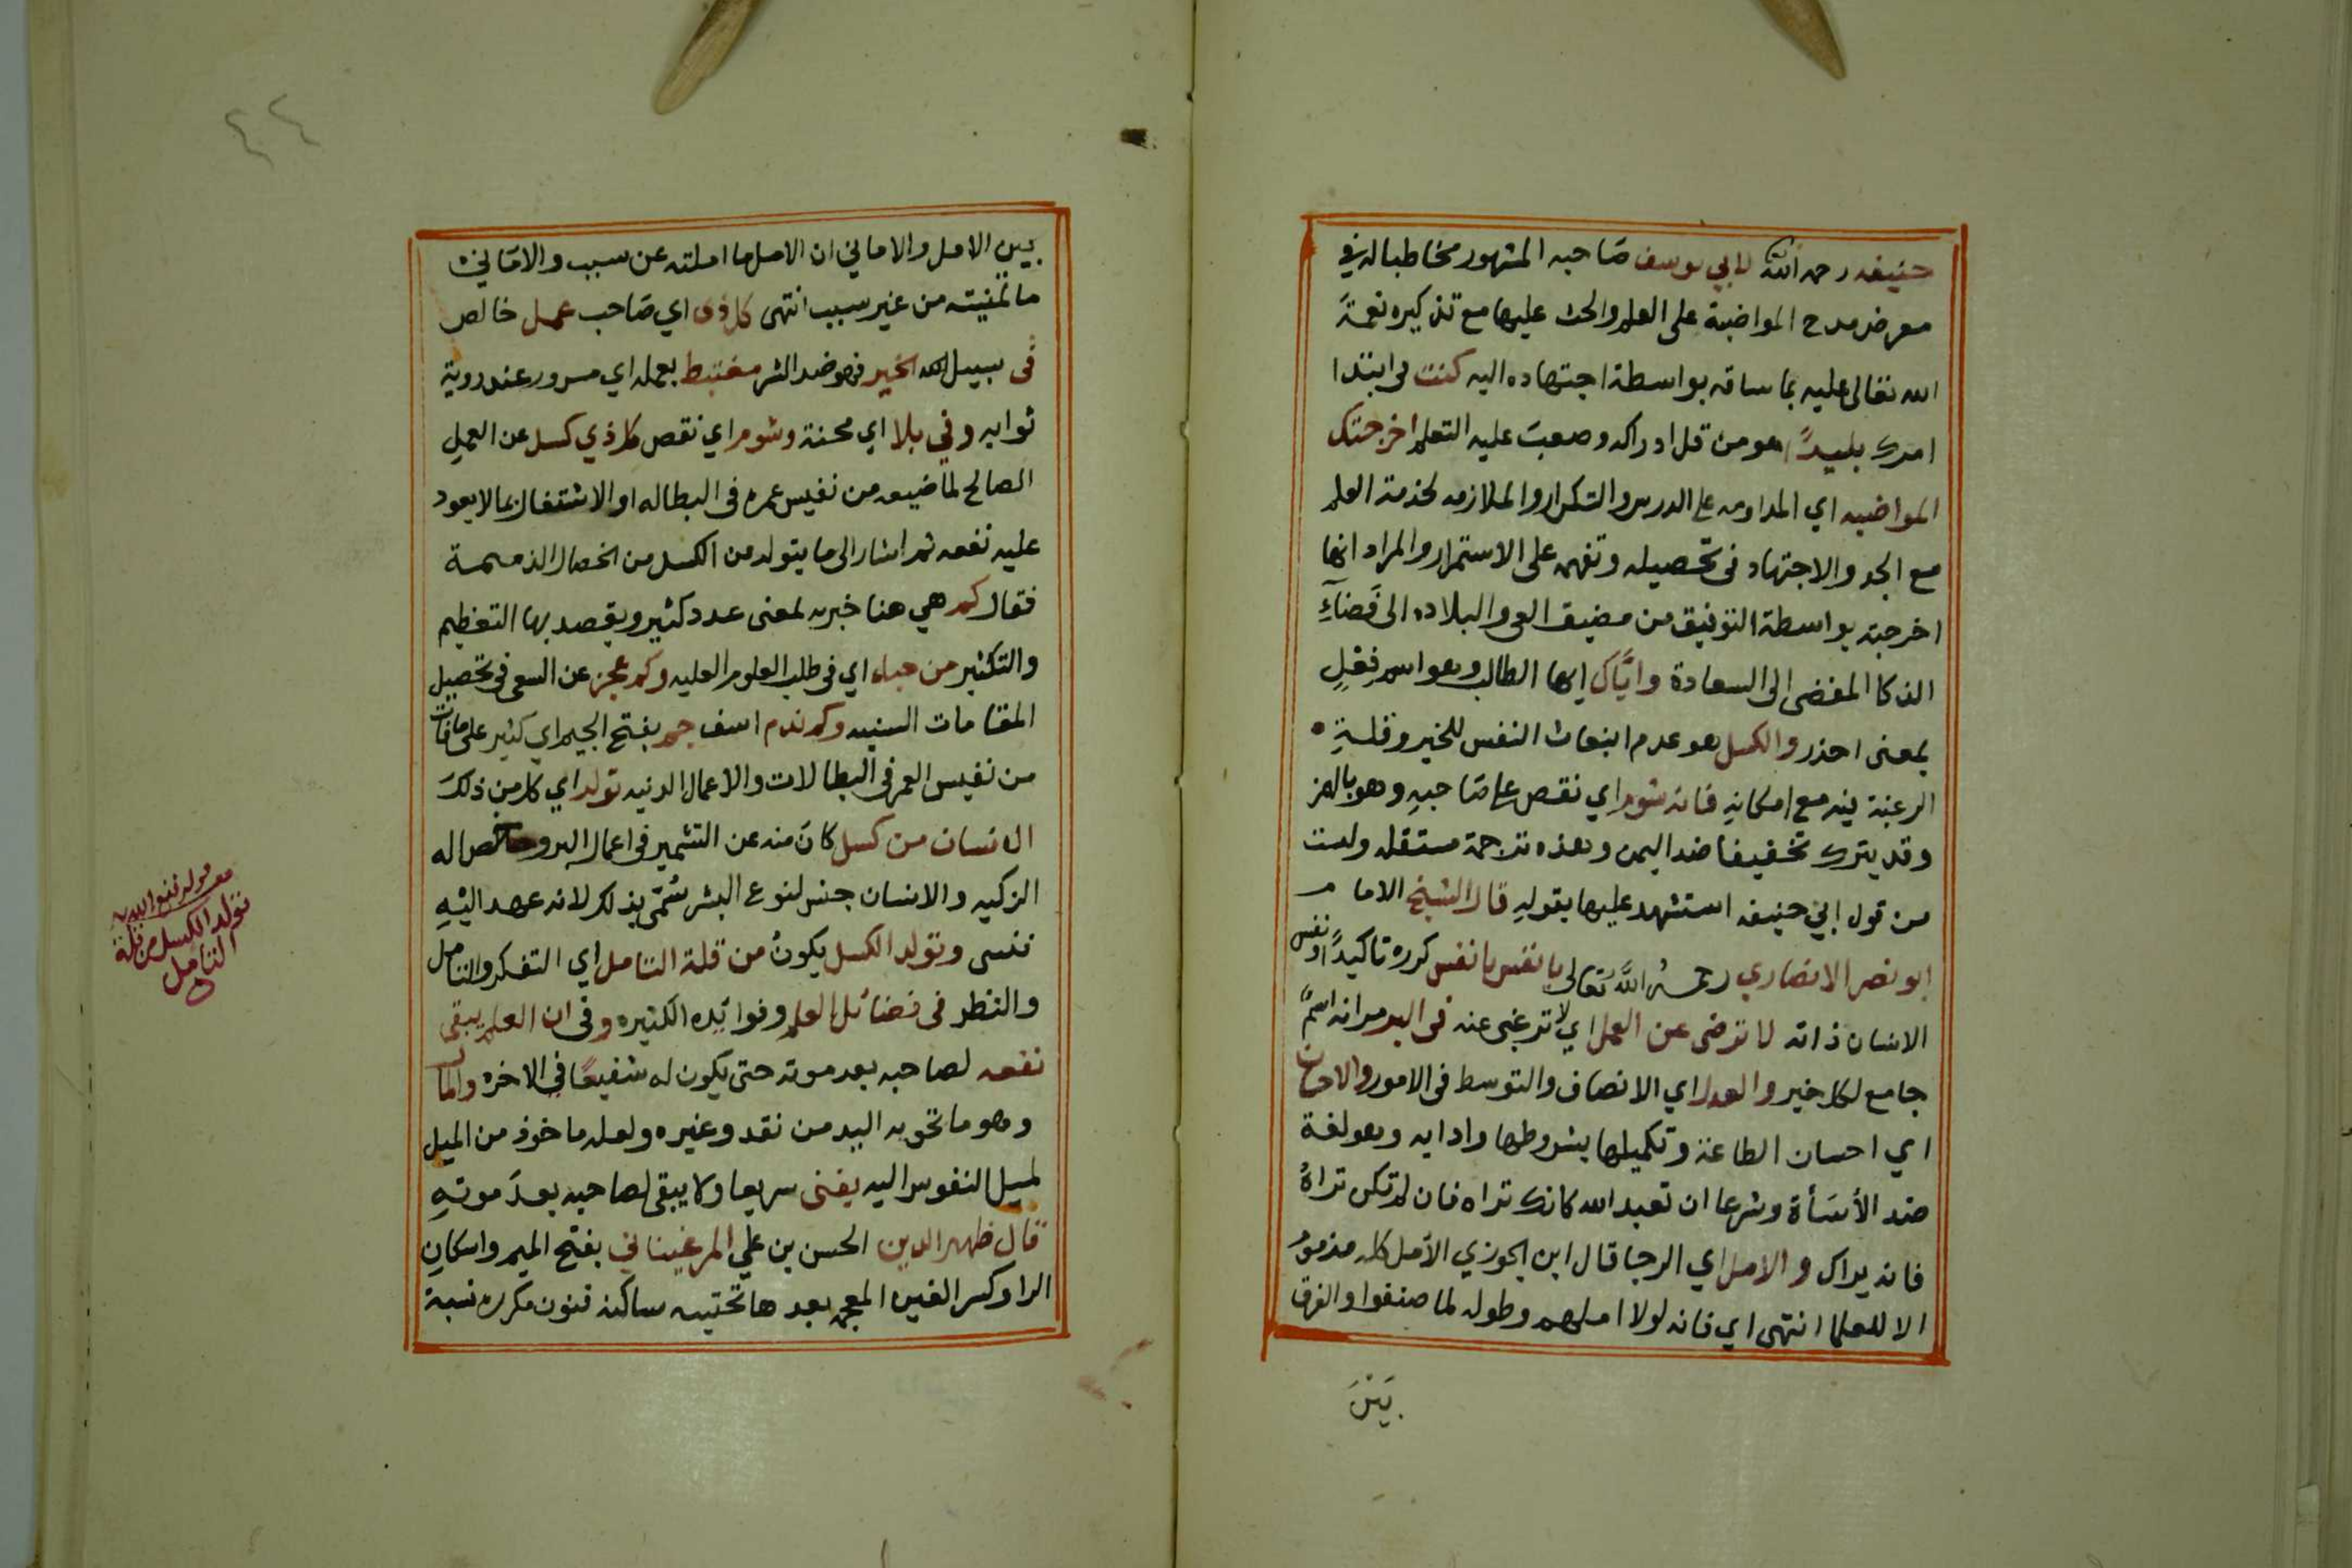 حنيفه رحمه الله لابي يوسف صَاحبه المشهور مخاطبا له في
معرض مدح المواضبة على العلم والحث عليها مع تذكيره نعمة
الله تعالى عليه بما ساقه بواسطة اجتهاده اليه كنت في ابتدا
امرك بليدًا هو من قل ادراكه وصعب عليه التعلم اخرجتك
المواضبه اي المداومه على الدرس والتكرار والملازمه لخدمة العلم
مع الجد والاجتهاد فى تحصيله وتفهمه على الاستمرار والمراد انها
اخرجته بواسطة التوفيق من مضيق العي والبلاده الى فَضَاءِ
الذكا المفضى الى السعادة واياك ايها الطالب وهو اسم فِعْلٍ
بمعنى احذر والكسل هو عدم انبعاث النفس للخير وقلة
الرغبة فيه مع امكانهِ فانه شوم اي نقص على صَاحبهِ وهو بالهمز
وقد يترك تخفيفا ضد اليمن وهذه ترجمة مستقله وليست
من قول ابي حنيفه استشهد عليها بقولهِ قال الشيخ الامام
ابو نصر الانصاري رحمهُ اللَّه تعالى يا نفس يا نفس كرره تاكيدًا ونفس
الانسان ذاته لا ترضى عن العمل اي لا ترغبي عنه فى البر مر انه اسمٌ
جامع لكل خير والعدل اي الانصاف والتوسط فى الامور والاحسان
اي احسان الطاعة وتكميلها بشروطها وادابه وهو لغة
ضد الأسَأة وشرعا ان تعبد الله كانك تراه فان لم تكن تراهُ
فانه يراك والامل اي الرجا قال ابن الجوزي الامل كله مذموم
الا للعلما انتهى اي فانه لولا املهم وطوله لما صنفوا والفرق
بَيْنَ
٤٤
بين الامل والاماني ان الامل ما املته عن سبب والامَاني
ما تمنيته من غير سبب انتهى كل ذى اي صَاحب عمل خالص
فى سبيل الله الخير فهو ضد الشر مغتبط بعمله اي مسرور عند روية
ثوابه وفي بلا اي محنة وشوم اي نقص كل ذي كسل عن العمل
الصالح لما ضيعه من نفيس عمره فى البطاله او الاشتغال بما لا يعود
عليه نفعه ثم اشار الى ما يتولد من الكسل من الخصال الذميمة
فقال كم هي هنا خبريه لمعنى عدد كثير ويقصد بها التعظيم
والتكثير من حياء اي فى طلب العلوم العليه وكم عجز عن السعى فى تحصيل
المقامات السنيه وكم ندم اسف جم بفتح الجيم اي كثير على ما فات
من نفيس العمر فى البطالات والاعمال الدنيه تولد اي كل من ذلك
الانسان من كسل كانَ منه عن التشمير فى اعمال البر وخصاله
الزكيه والانسان جنس لنوع البشر سُمّى بذلك لانه عهد اليهِ
فنسى وتولد الكسل يكونُ من قلة التامل اي التفكر والتامل
والنظر فى فضائل العلم وفوائده الكثيره وفى ان العلم يبقى
نفعه لصاحبه بعد موته حتى يكون له شفيعًا في الاخره والمال
وهو ما تحويه اليد من نقد وغيره ولعله ماخوذ من الميل
لميل النفوس اليه يفنى سريعا ولا يبقى لصاحبه بعدَ موتهِ
قال ظهير الدين الحسن بن علي المرغيناني بفتح الميم واسكانِ
الرا وكسر الغين المعجمه بعدها تحتيه ساكنه فنون مكرره نسبة
تولد الكسل من قلة
التامل